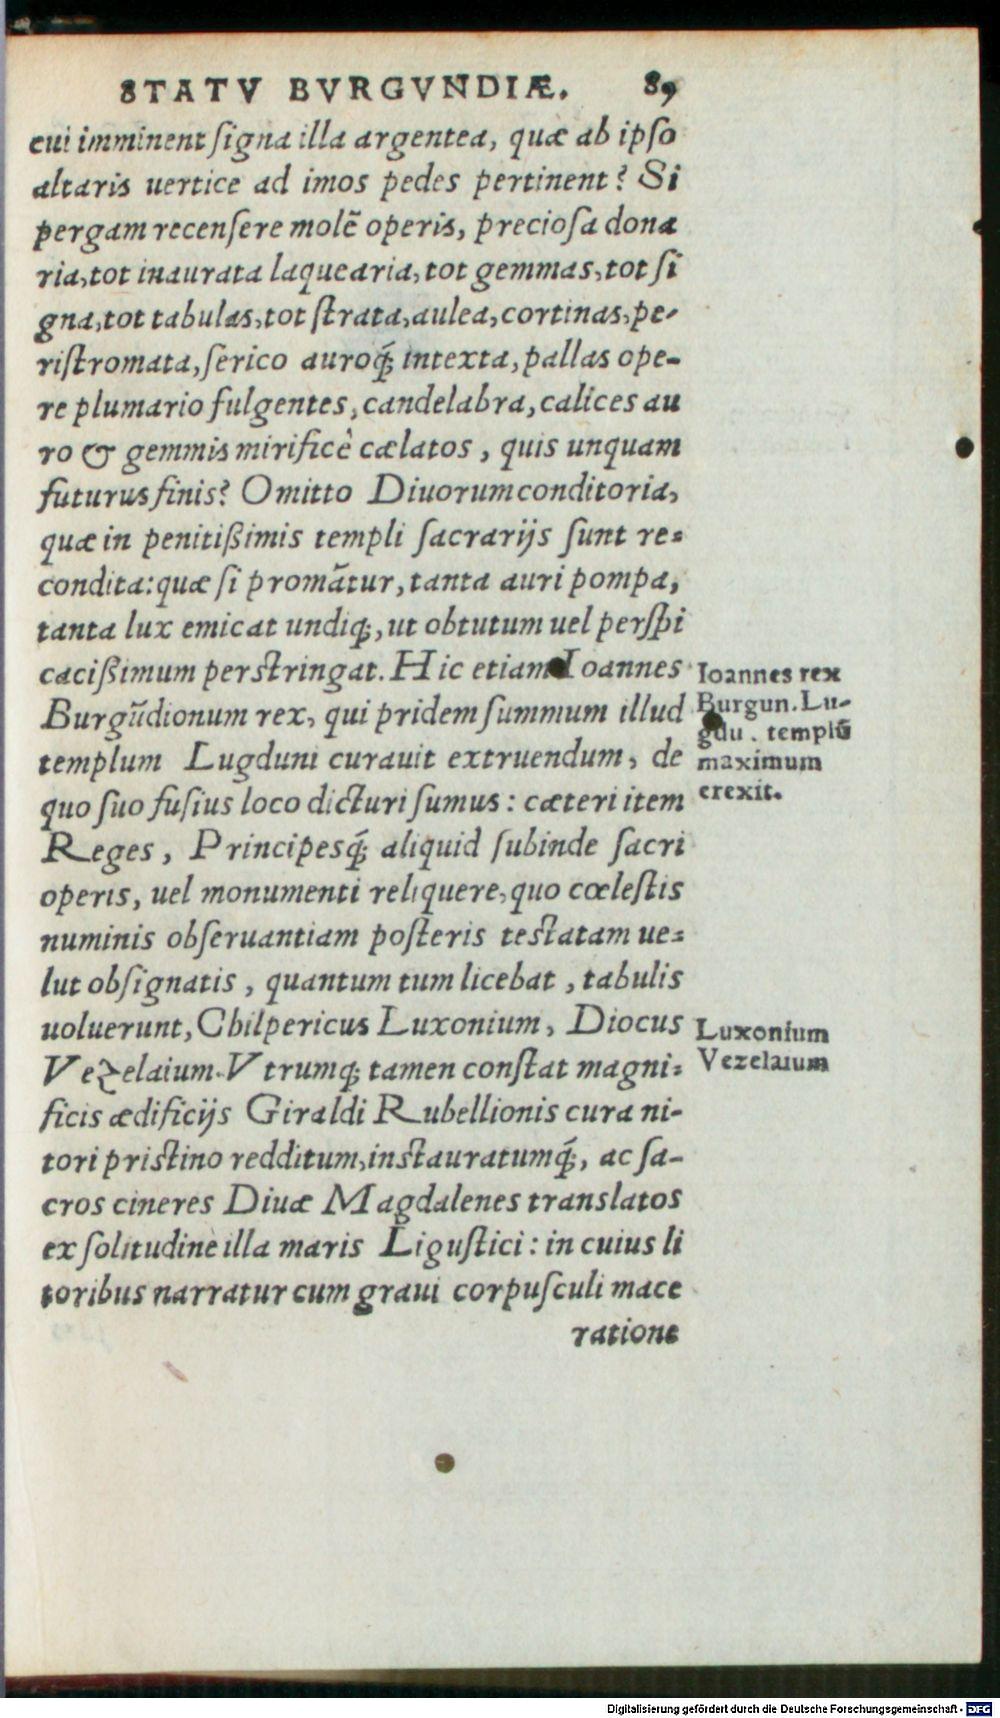 STATV BVRGVNDIÆ. 89
cui imminent ſigna illa argentea, quæ ab ipſo
altaris uertice ad imos pedes pertinent? Si
pergam recenſere molē operis, precioſa dona
ria, tot inaurata laquearia, tot gemmas, tot ſi
gna, tot tabulas, tot ſtrata, aulea, cortinas, pe-
riſtromata, ſerico auroq́; intexta, pallas ope-
re plumario fulgentes, candelabra, calices au
ro & gemmis mirificè cælatos, quis unquam
futurus finis? Omitto Diuorum conditoria,
quæ in penitißimis templi ſacrarijs ſunt re-
condita: quæ ſi promātur, tanta auri pompa,
tanta lux emicat undiq;, ut obtutum uel perſpi
cacißimum perſtringat. Hic etiam Ioannes
Burgūdionum rex, qui pridem ſummum illud
templum Lugduni curauit extruendum, de
quo ſuo fuſius loco dicturi ſumus: cæteri item
Reges, Principesq́; aliquid ſubinde ſacri
operis, uel monumenti reliquere, quo cœleſtis
numinis obſeruantiam poſteris teſtatam ue-
lut obſignatis, quantum tum licebat, tabulis
uoluerunt, Chilpericus Luxonium, Diocus
Vezelaium. Vtrumq; tamen conſtat magni-
ficis ædificijs Giraldi Rubellionis cura ni-
tori priſtino redditum, inſtauratumq́;, ac ſa-
cros cineres Diuæ Magdalenes translatos
ex ſolitudine illa maris Liguſtici: in cuius li
toribus narratur cum graui corpuſculi mace
ratione
Ioannes rex
Burgun. Lu-
gdu. templū
maximum
erexit.
Luxonium
Vezelaium
Digitalisierung gefördert durch die Deutsche Forschungsgemeinschaft - DFG